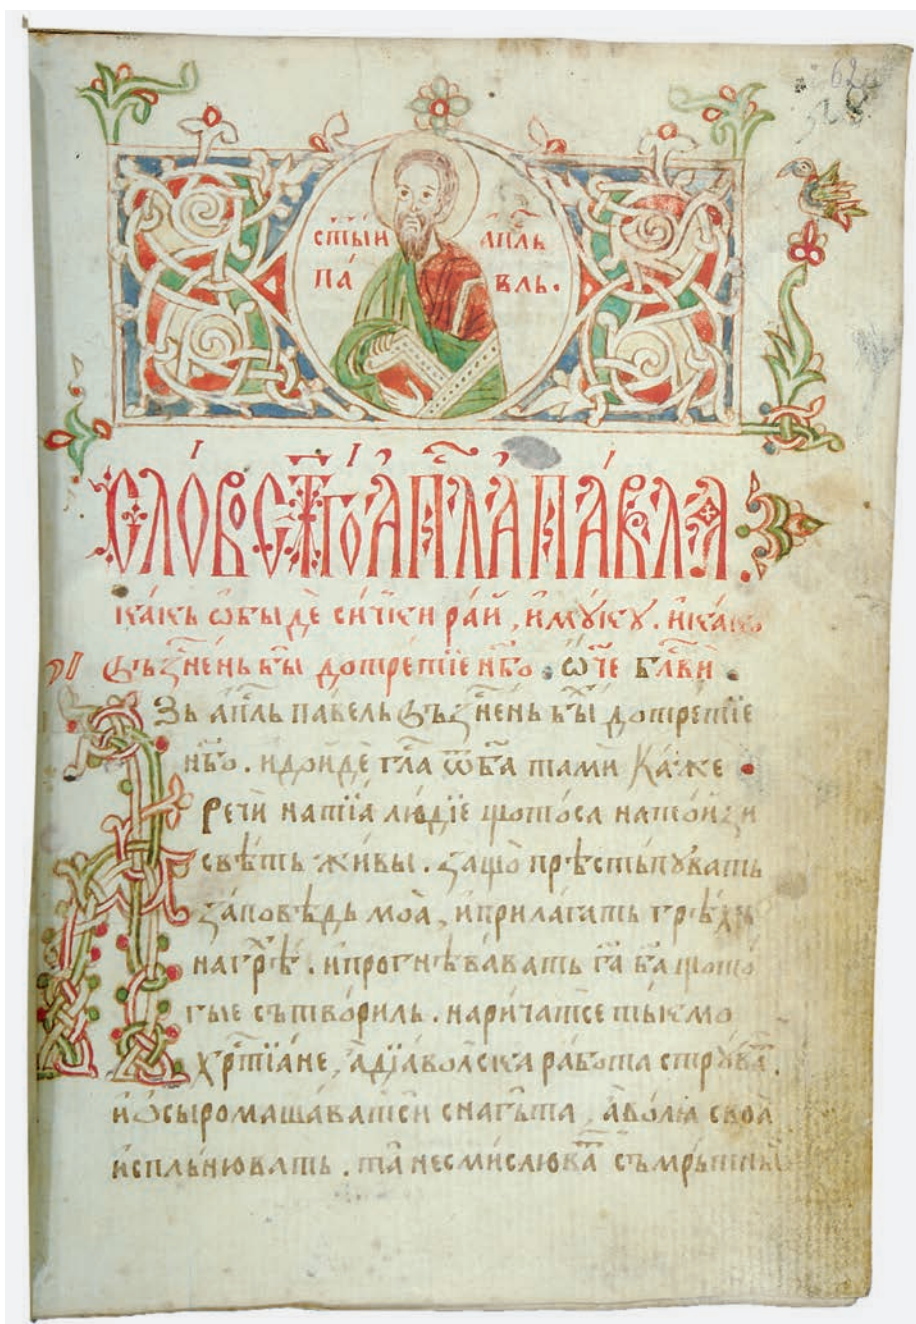 62а
28
ст҃ы́и ап҃ль
па́ вль.
Сло́во ст҃го ап҃ла па́вла
ка́кь ѡбыдѐ си́чки ра́й, и мꙋ́кꙋ. и ка́ко
въз̾несе́нь бы̀ до трети́е н҃бо. ѡ҆́ч҃е бл҃ви̏.
Азь ап҃ль па́вель въз̾несе́нь бы́х до трети́е
н҃бо. и до́йде гл҃а ѿ б҃а та́ми ка́же
речѝ на ті́а лю́дїе що то́са на то́йзи
свѣ́ть жи́вы. защо̀ прѣстъпꙋ́вать
за́повѣдь моа̀, и прила́гать грѣ́хь
на грѣ́х. и прогнѣва́вать г҃а б҃а що то̀
гые сътво́риль. нарича́тсе ты́кмо
хр҃тїа́не, а дїа́волска ра́бота стрꙋ́ват.
и ѡсырома́шаватси снагъ̀та, а во́лѧ своа̀
испль́нювать. та не сми́слюват съмръ́тны